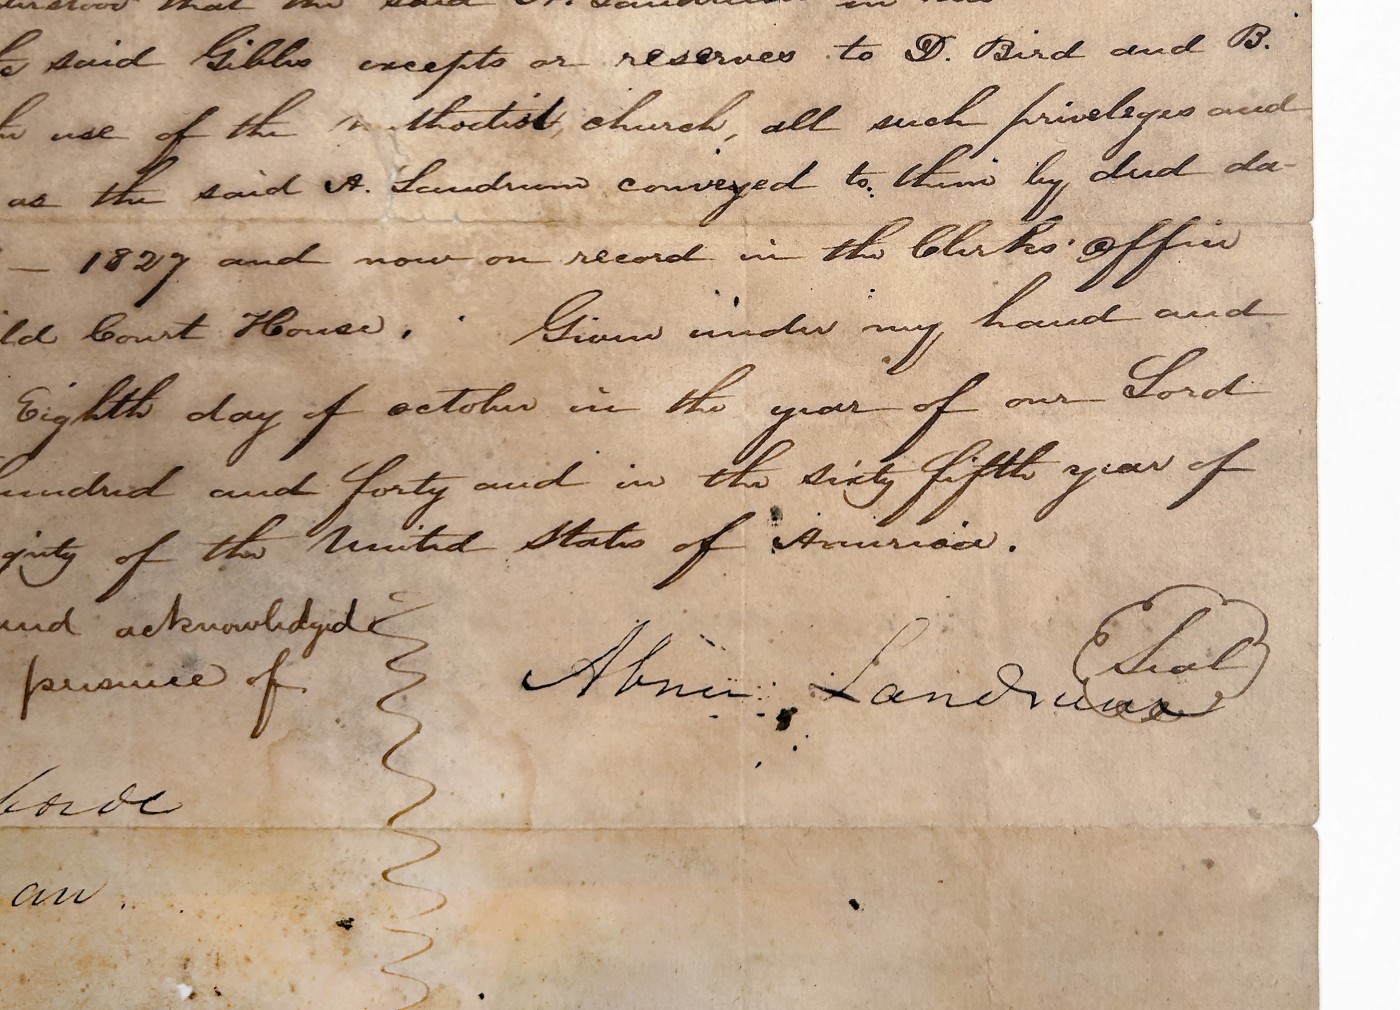 derstood that the said A. Landrum in the
the said Gibbs excepts or reserves to D. Bird and B.
the use of the Methodist church, all such priveleges and
as the said A. Landrum conveyed to them by deed da-
— 1827 and now on record in the Clerks' Office
ld Court House. Given under my hand and
Eighth day of october in the year of our Lord
hundred and forty and in the sixty fifth year of
gnty of the United States of America.
and acknowledged
presence of
Abner Landrum
Seal